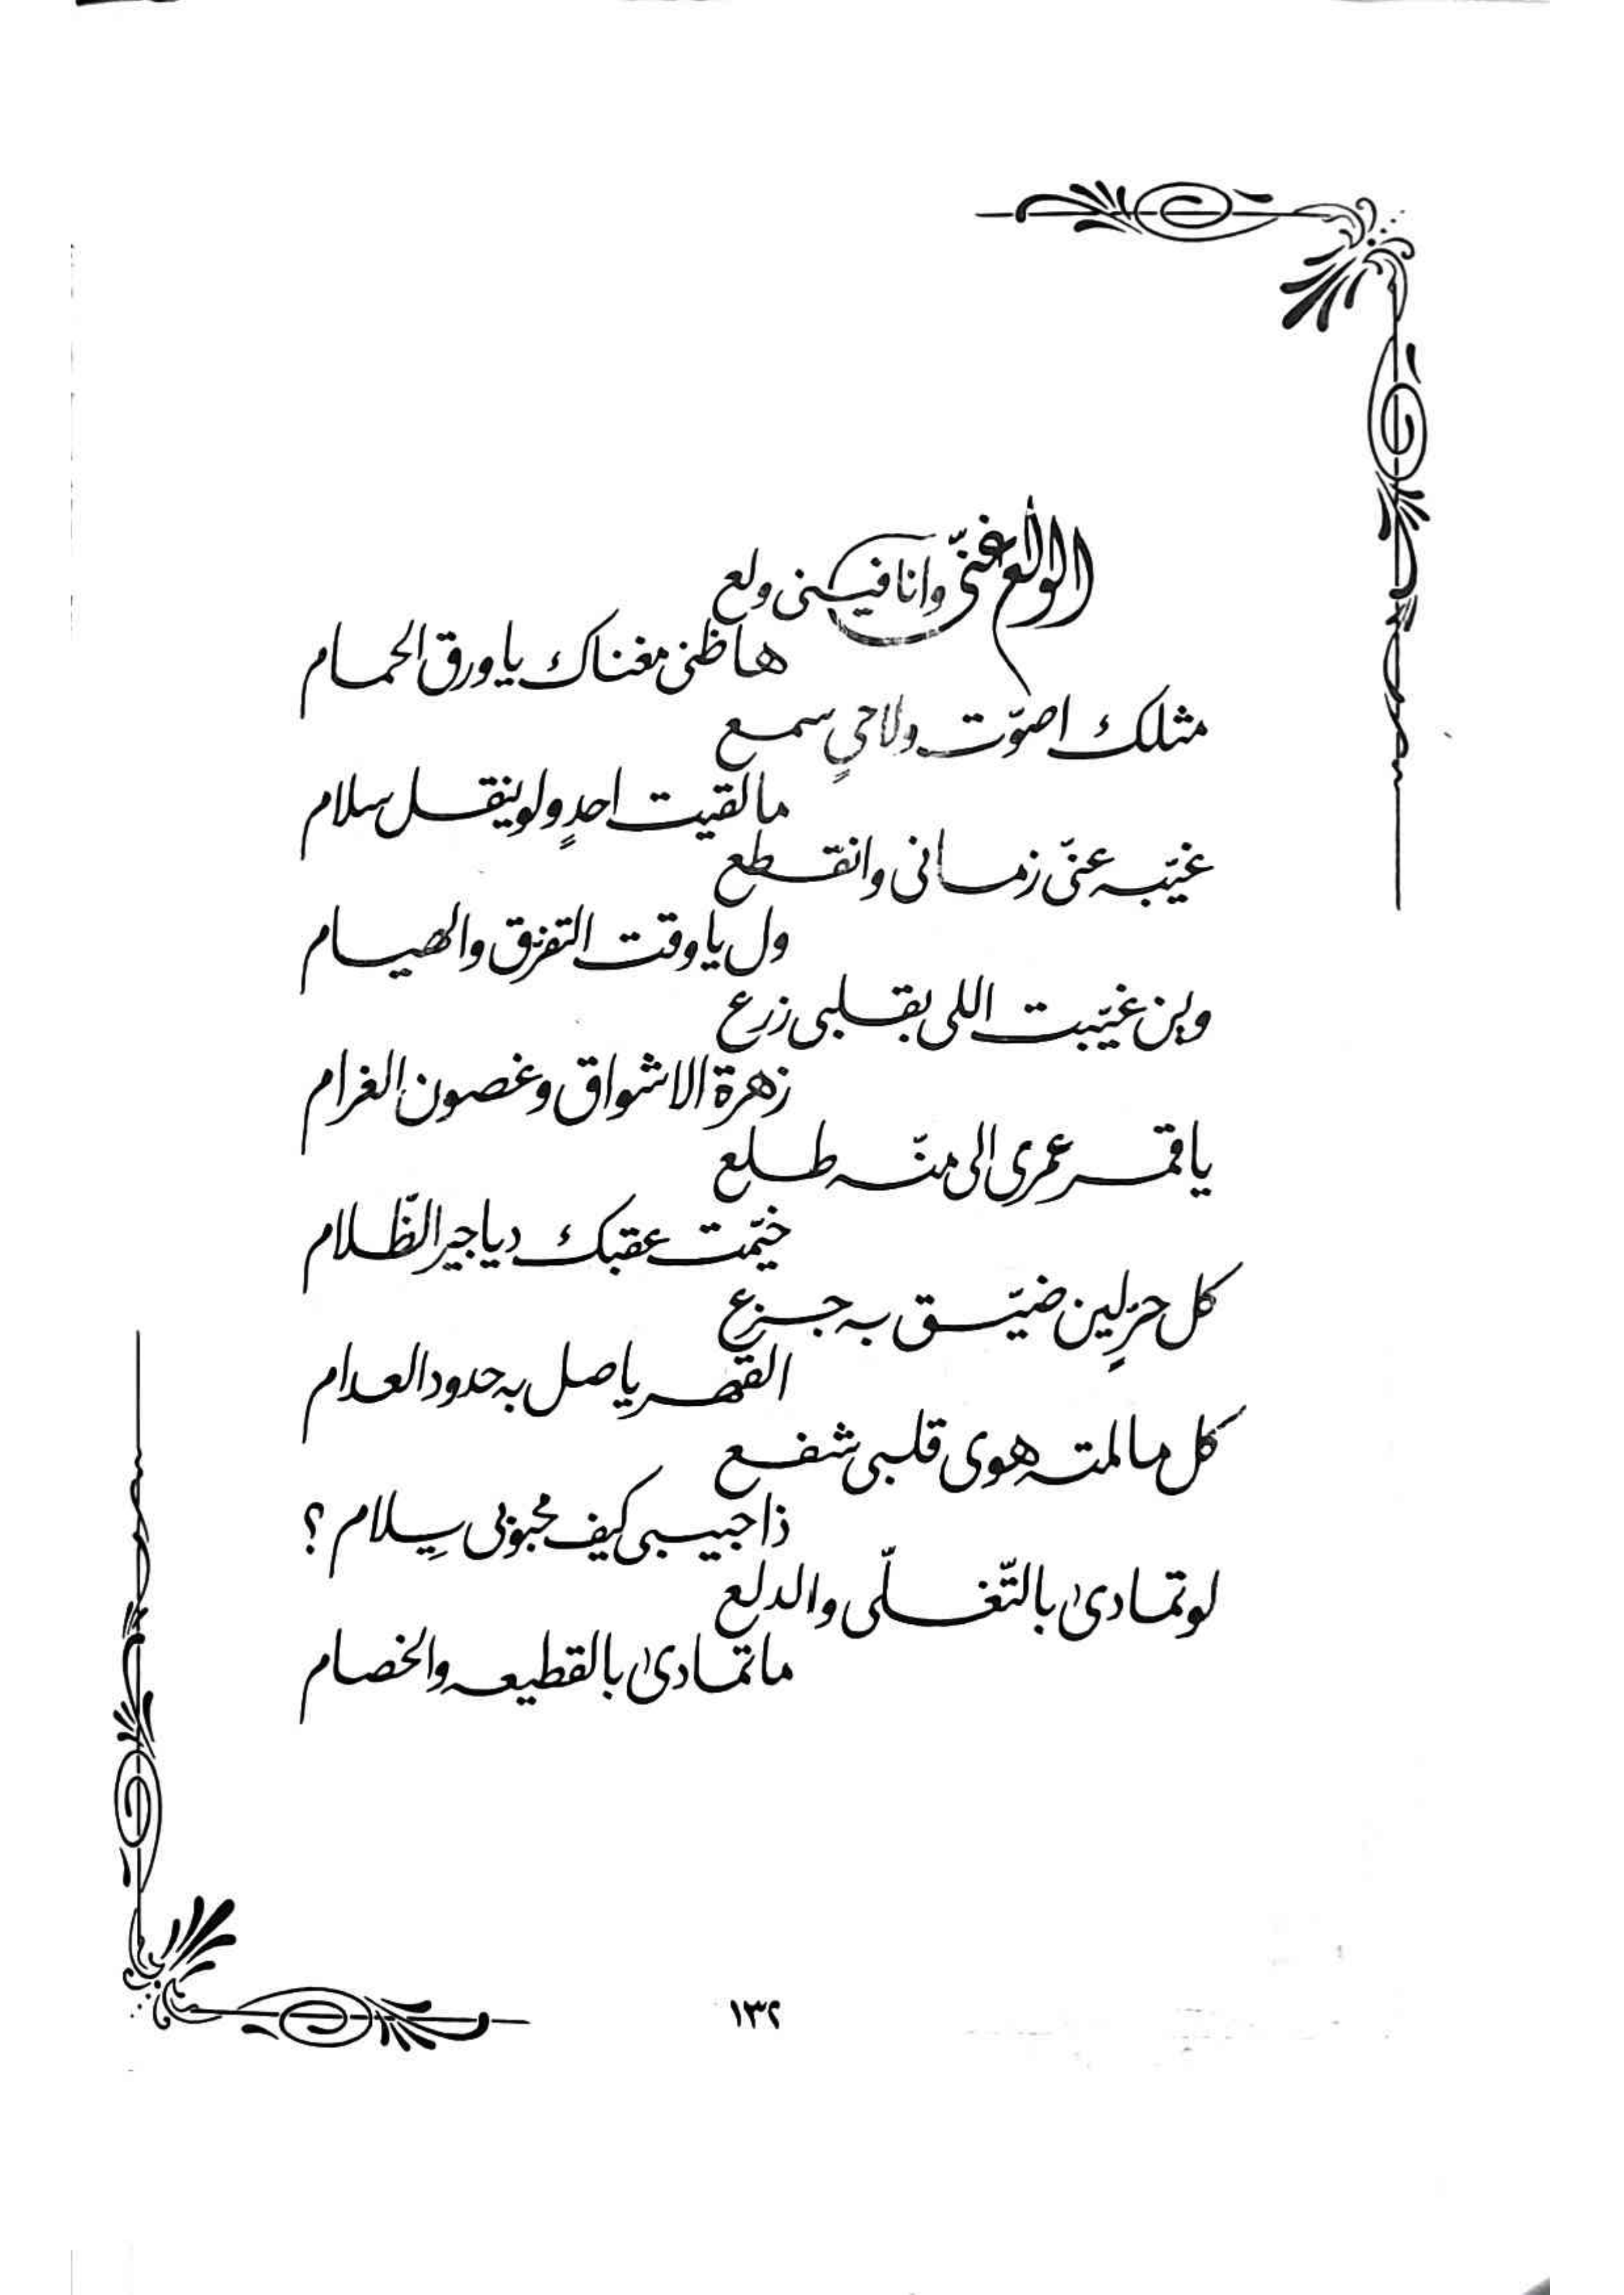 الوالع غنّى وانا فيني ولع
هاظني مغناك يا ورق الحمام
مثلك اصوّت ولا حيٍ سمع
ما لقيت احدٍ ولو ينقل سلام
غيّبه عنّي زماني وانقطع
ول يا وقت التفرق والهيام
وين غيّبت اللي بقلبي زرع
زهرة الاشواق وغصون الغرام
يا قمر عمري الى منّه طلع
خيّمت عقبك دياجير الظّلام
كل حرٍ لين ضيّق به جزع
القهر ياصل به حدود العدام
كل ما لمته هوى قلبي شفع
ذا حبيبي كيف محبوبي يِلام ؟
لو تمادىٰ بالتّغلّي والدلع
ما تمادىٰ بالقطيعه والخصام
١٣٢